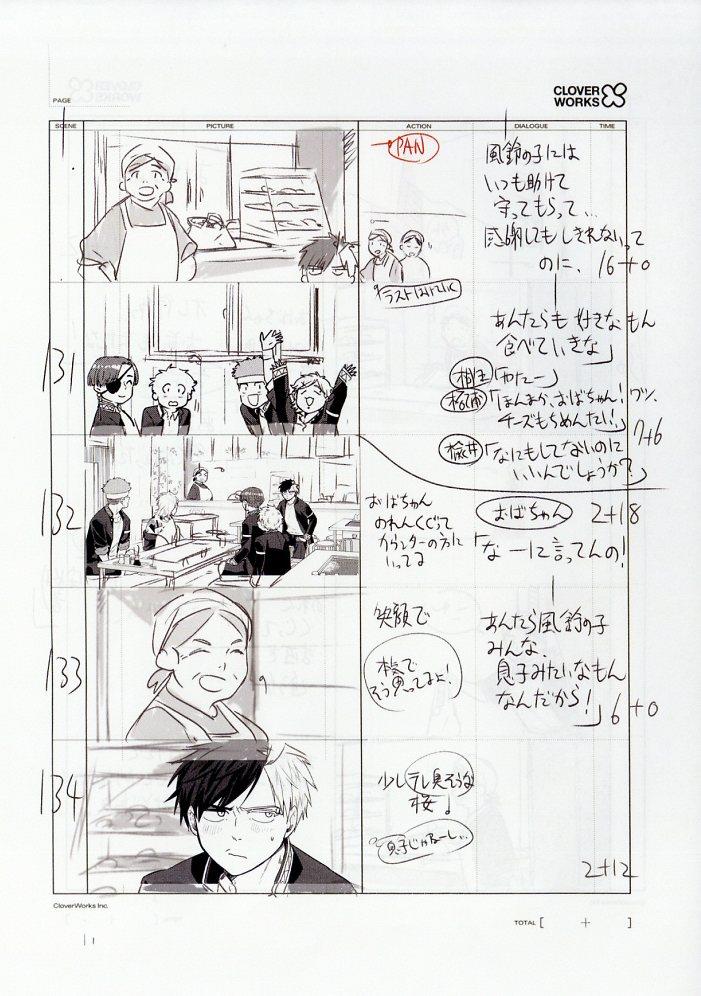 PAGE
CLOVER
WORKS
SCENE
PICTURE
ACTION
DIALOGUE
TIME
PAN
風鈴の子には
いつも助けて
守ってもらって…
感謝してもしきれないって
のに、
16+0
ラストはけていく
131
あんたらも好きなもん
食べていきな」
「わたー」
「ほんまか、おばちゃん!ワシ、
チーズもちめんたい!」
7+6
楡井
「なにもしてないのに
いいんでしょうか?」
132
おばちゃん
のれんくぐって
カウンターの方に
いってる
おばちゃん
2+18
「なーに言ってんの!
133
笑顔で
本気で
そう思ってるよ!
あんたら風鈴の子
みんな、
息子みたいなもん
なんだから!」
6+0
134
少しテレ臭そうな
桜」
息子じゃねーし…
2+12
CloverWorks Inc.
TOTAL [ + ]